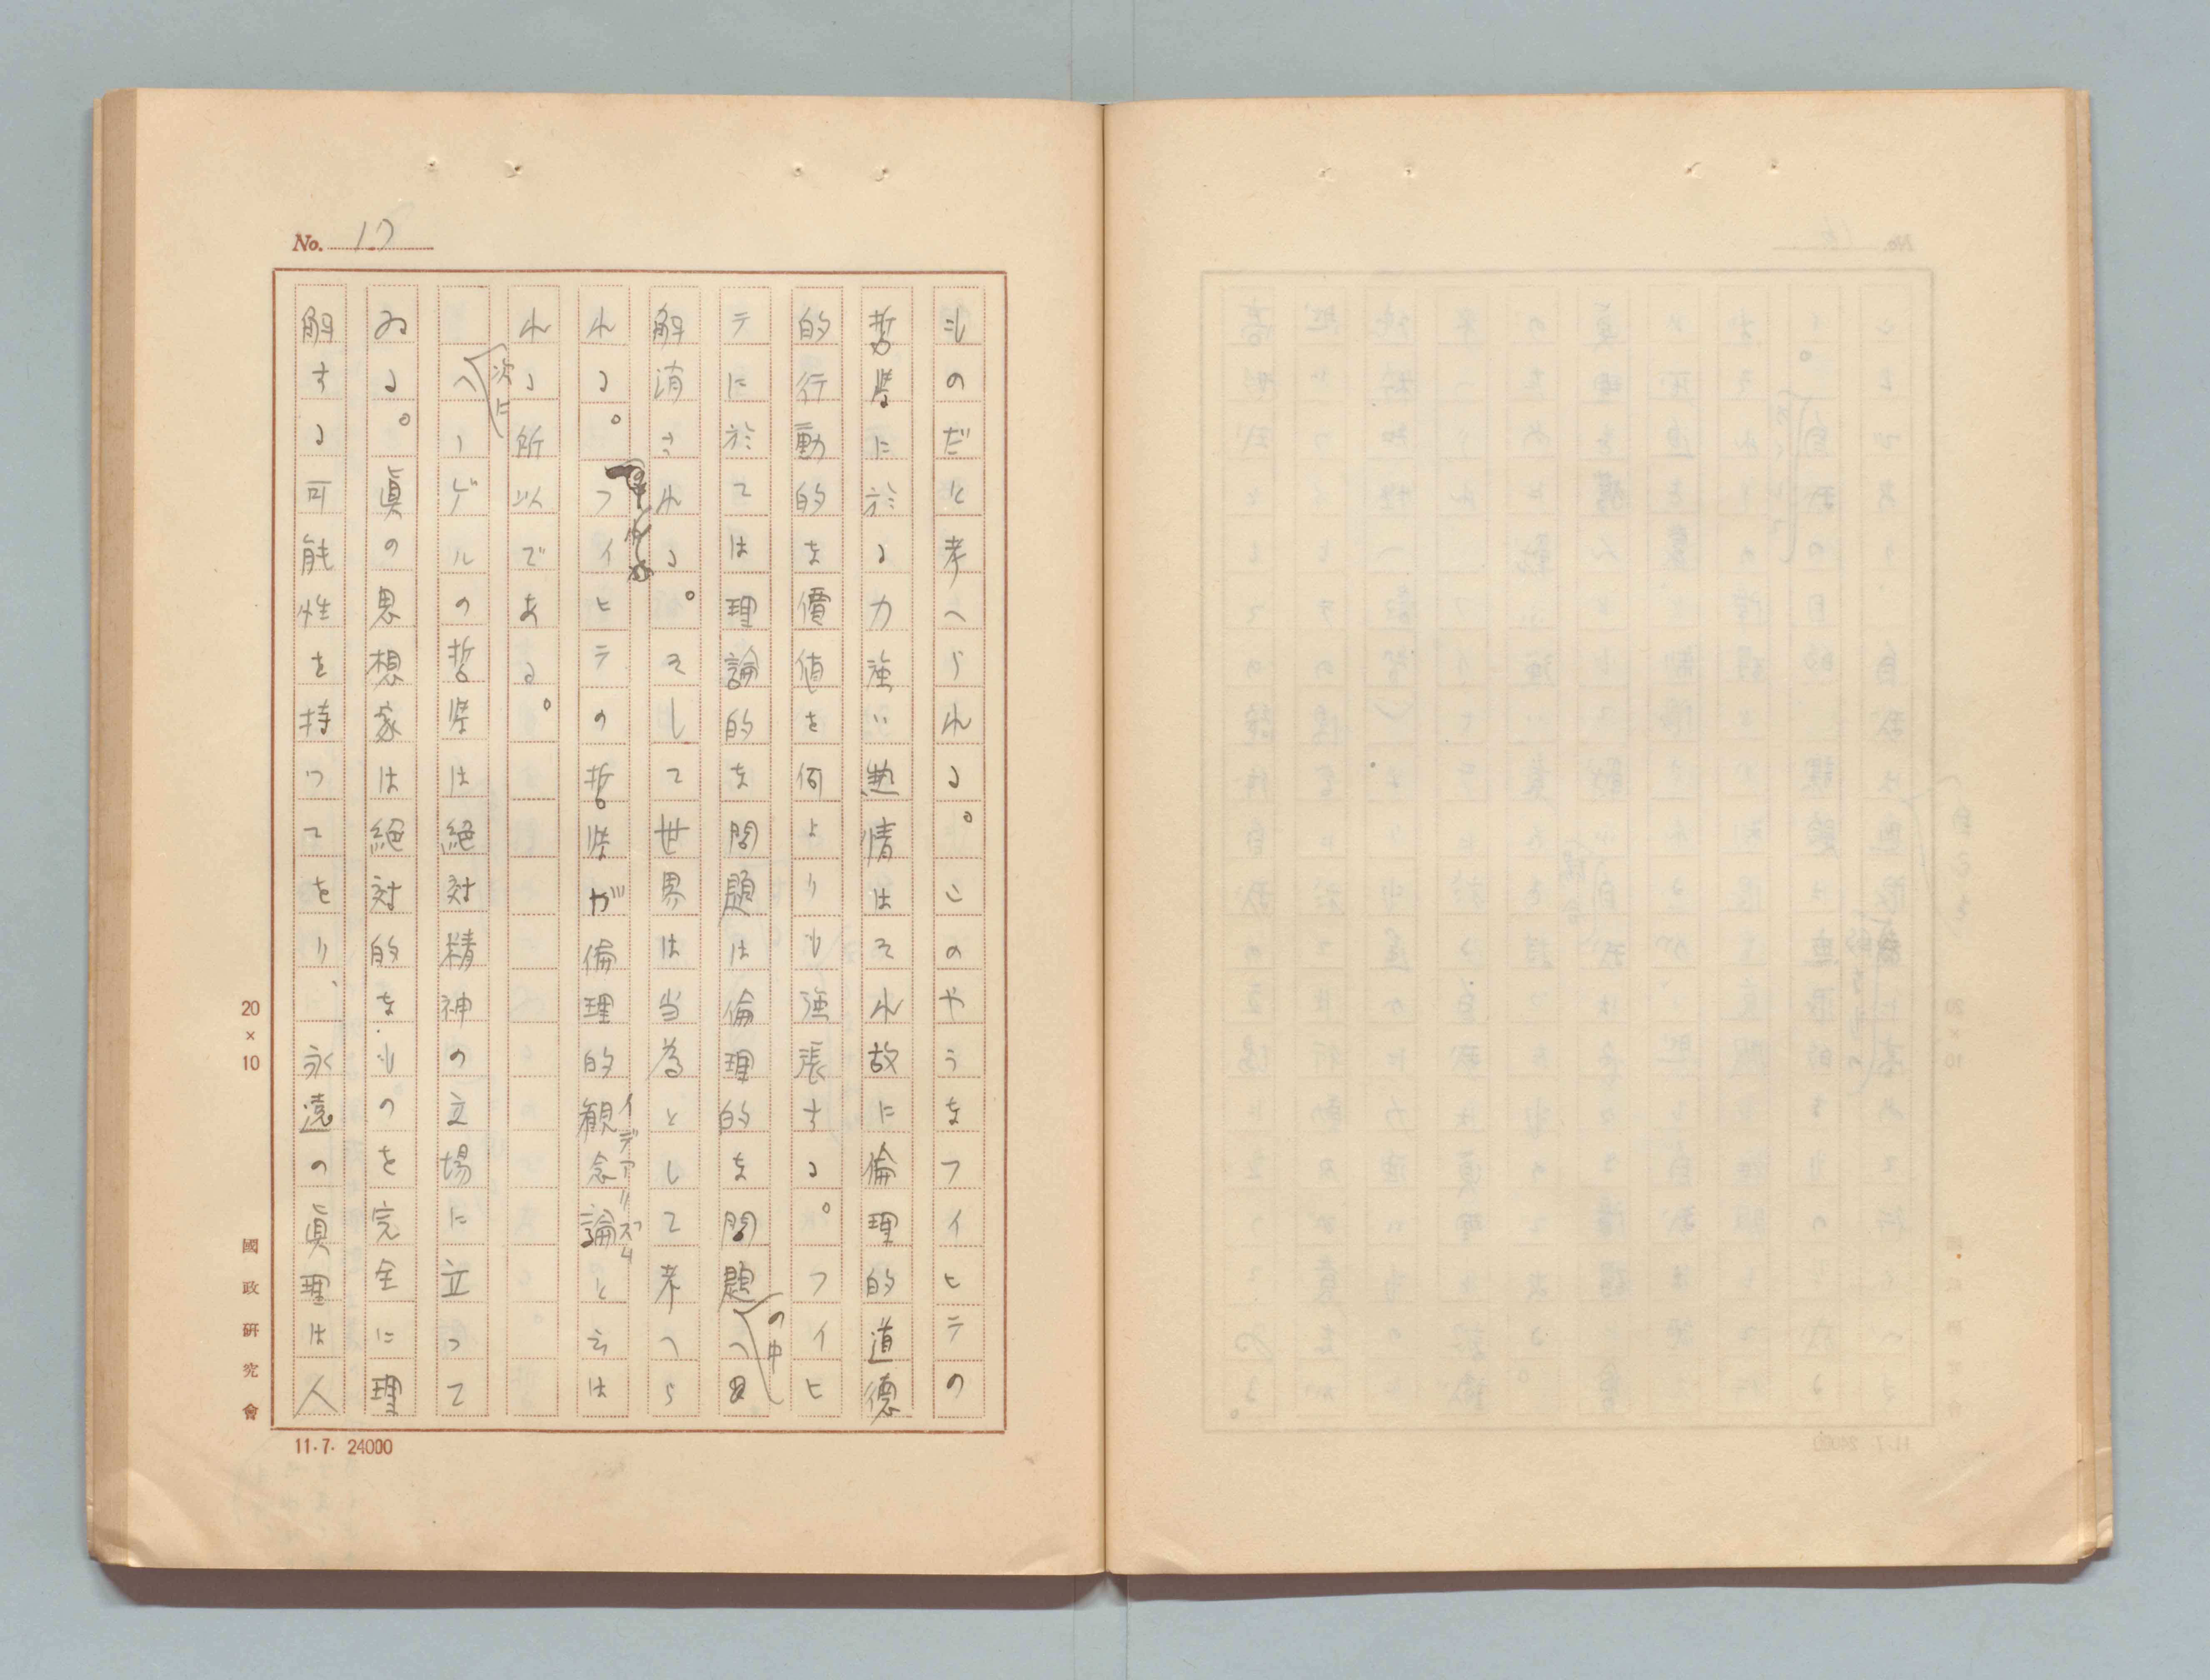 No. 17
ものだと考へられる。このやうなフイヒテの
哲学に於る力強い熱情はそれ故に倫理的道徳
的行動的な價値を何よりも強張する。フイヒ
テに於ては理論的な問題は倫理的な問題の中へ
解消される。そして世界は当為として考へら
れる。フイヒテの哲学が倫理的観念論と云は
イデアリズム
れる所以である。
次に
ヘーゲルの哲学は絶対精神の立場に立って
ゐる。眞の思想家は絶対的なものを完全に理
解する可能性を持ってをり、永遠の眞理は人
20×10
國政研究會
11.7. 24000